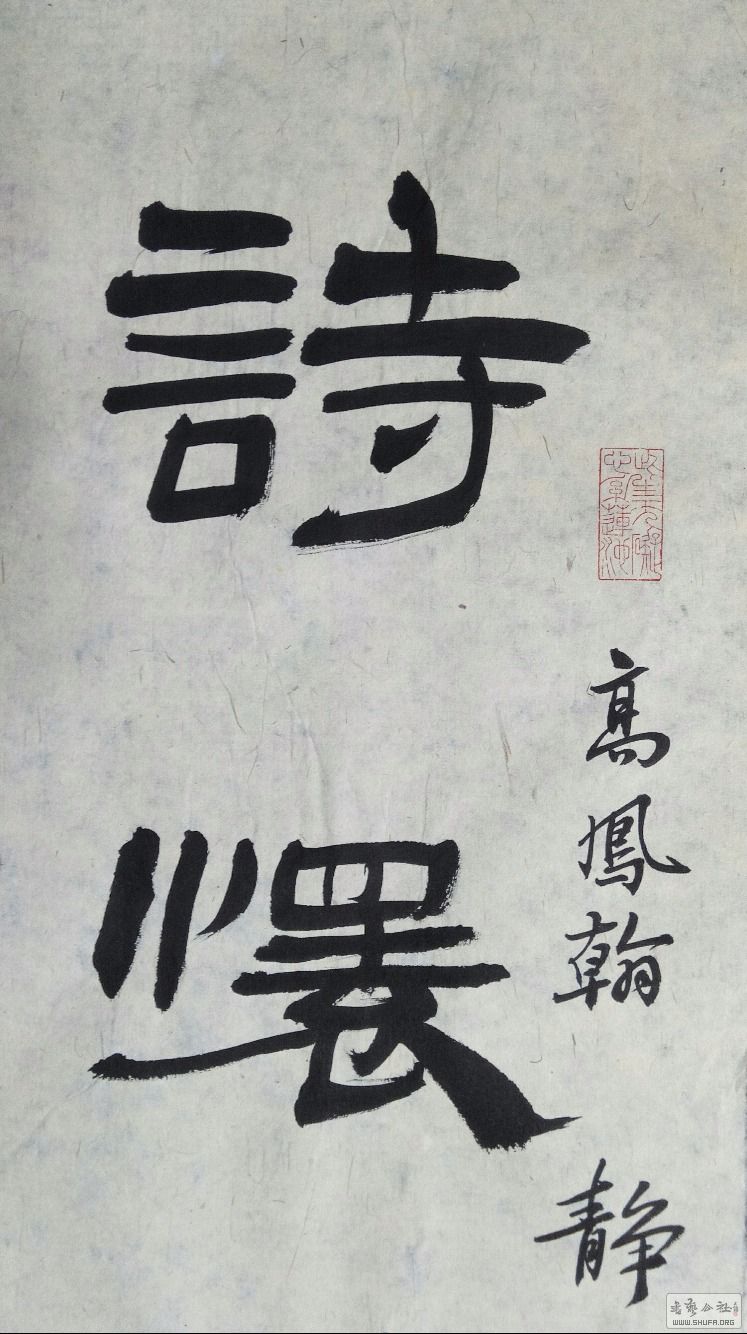 詩還
高鳳翰
静
書藝公社
WWW.SHUFA.ORG